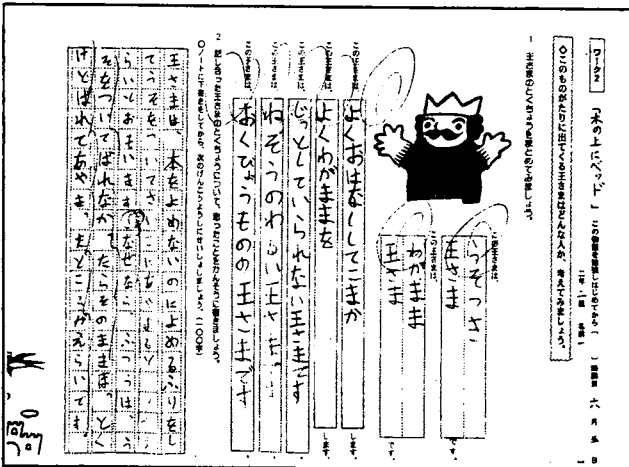 ワーク2
「木の上にベッド」
この物語を勉強しはじめてから( )時間目 六月 日
二年 組 名前
◇このものがたりに出てくる王さまはどんな人か、考えてみましょう。
1 王さまのとくちょうをまとめてみましょう。
この王さまは、
うそつきな
王さま
です。
この王さまは、
わがまま
王さま
です。
この王さまは、
よくおはなししてこまか
します。
この王さまは、
よくわがままを
します。
この王さまは、
じっとしていられない王さまです
この王さまは、
ねぞうのわるい王さま
この王さまは、
おくびょうものの王さまです
2 話し合った王さまのとくちょうについて、思ったことをかんそうに書きましょう。
○ノートに下書きをしてから、次のげんこうようしにせいしょしましょう。(一〇〇字)
王さまは、本をよめないのによめるふりをし
てうそをついてさいごに
らいとおもいます。なぜなら、ふつうは、う
そをついてばれなかったらそのままだ。とく
けどばれてあやまったところがえらいです。